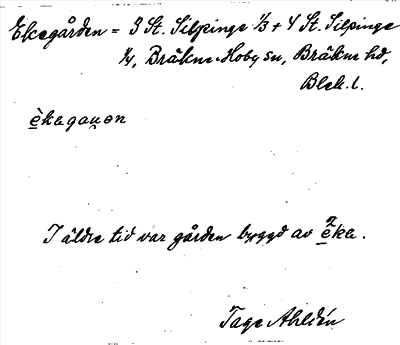 Ekegården = 3 St. Silpinge ⅓ + 4 St. Silpinge
¼, Bräkne-Hoby sn, Bräkne hd,
Blek. l.
I äldre tid var gården byggd av èka.
Tage Ahldén